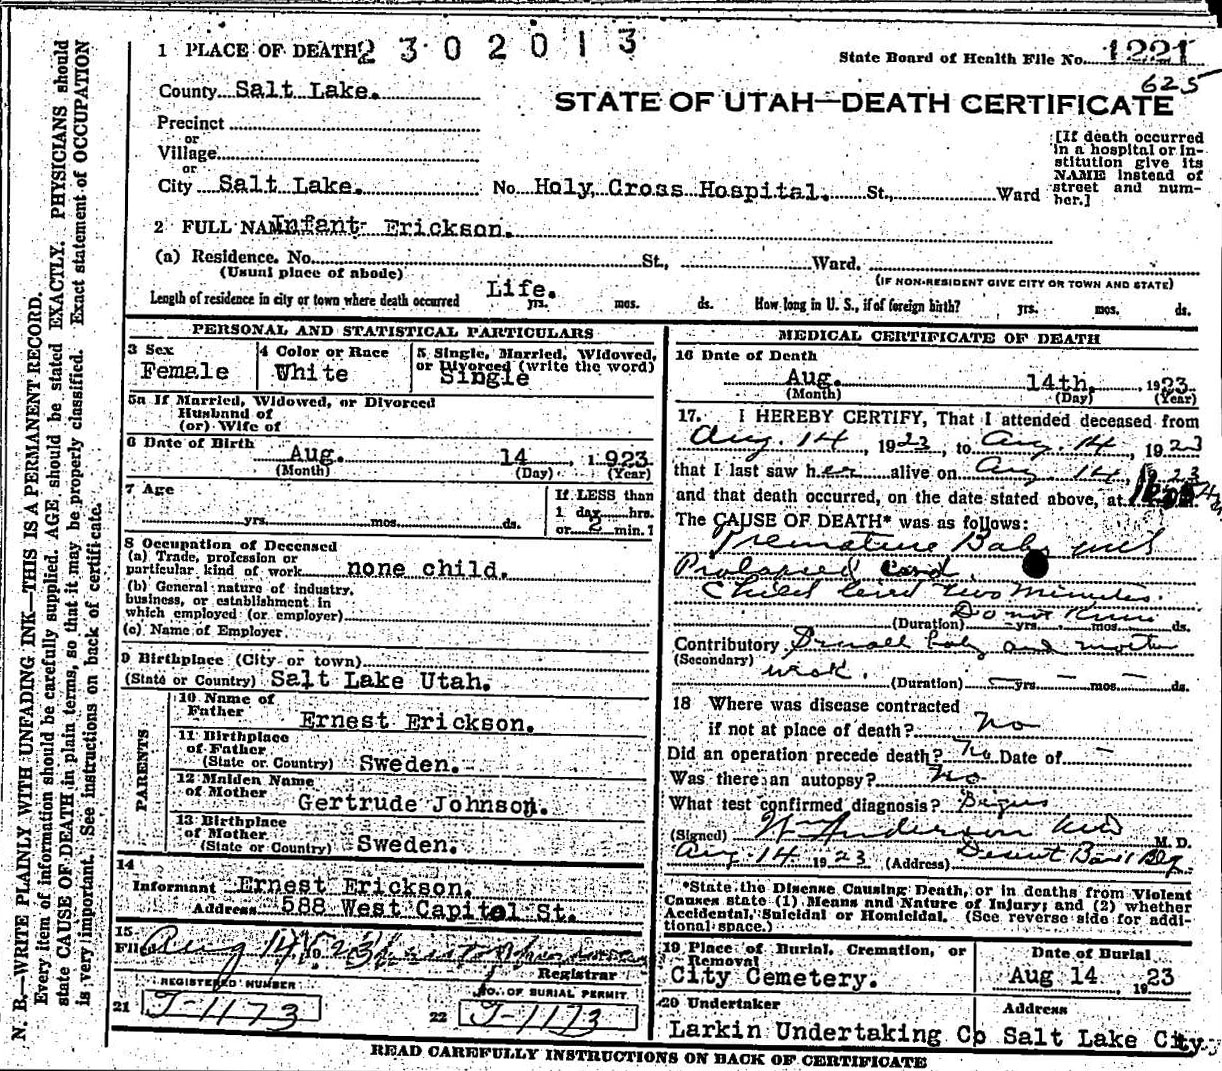 N. B.—WRITE PLAINLY WITH UNFADING INK—THIS IS A PERMANENT RECORD.
Every item of information should be carefully supplied. AGE should be stated EXACTLY. PHYSICIANS should
state CAUSE OF DEATH in plain terms, so that it may be properly classified. Exact statement of OCCUPATION
is very important. See instructions on back of certificate.
1 PLACE OF DEATH 2302013
State Board of Health File No. 1221
625
County Salt Lake.
STATE OF UTAH—DEATH CERTIFICATE
Precinct
or
Village
or
City Salt Lake. No. Holy Cross Hospital. St., Ward
[If death occurred
in a hospital or in-
stitution give its
NAME instead of
street and num-
ber.]
2 FULL NAME Infant Erickson.
(a) Residence. No. St., Ward.
(Usual place of abode) (IF NON-RESIDENT GIVE CITY OR TOWN AND STATE)
Length of residence in city or town where death occurred Life. yrs. mos. ds. How long in U. S., if of foreign birth? yrs. mos. ds.
PERSONAL AND STATISTICAL PARTICULARS
3 Sex 4 Color or Race 5 Single, Married, Widowed,
or Divorced (write the word)
Female White Single
5a If Married, Widowed, or Divorced
Husband of
(or) Wife of
6 Date of Birth
Aug. 14, 1923
(Month) (Day) (Year)
7 Age If LESS than
1 day hrs.
yrs. mos. ds. or 2 min.?
8 Occupation of Deceased
(a) Trade, profession or
particular kind of work none child.
(b) General nature of industry,
business, or establishment in
which employed (or employer)
(c) Name of Employer
9 Birthplace (City or town)
(State or Country) Salt Lake Utah.
PARENTS
10 Name of
Father Ernest Erickson.
11 Birthplace
of Father
(State or Country) Sweden.
12 Maiden Name
of Mother Gertrude Johnson.
13 Birthplace
of Mother
(State or Country) Sweden.
14
Informant Ernest Erickson.
Address 588 West Capitol St.
15
Filed Aug 14 1923
Registrar
REGISTERED NUMBER NO. OF BURIAL PERMIT
21 J-1173 22 J-1173
MEDICAL CERTIFICATE OF DEATH
16 Date of Death
Aug. 14th, 1923
(Month) (Day) (Year)
17. I HEREBY CERTIFY, That I attended deceased from
Aug. 14, 1923, to Aug. 14, 1923
that I last saw her alive on Aug 14, 1923
and that death occurred, on the date stated above, at
The CAUSE OF DEATH* was as follows:
Premature Baby and
Prolapsed Cord.
Child lived two minutes.
Do not Know
(Duration) yrs. mos. ds.
Contributory Small baby and mother
(Secondary) weak.
(Duration) — yrs. — mos. — ds.
18 Where was disease contracted
if not at place of death? No
Did an operation precede death? No Date of —
Was there an autopsy? No
What test confirmed diagnosis?
(Signed) Wm Anderson M.D. M. D.
Aug. 14 1923 (Address) Deseret Bank Blg.
*State the Disease Causing Death, or in deaths from Violent
Causes state (1) Means and Nature of Injury; and (2) whether
Accidental, Suicidal or Homicidal. (See reverse side for addi-
tional space.)
19 Place of Burial, Cremation, or
Removal
City Cemetery.
Date of Burial
Aug 14 1923
20 Undertaker Address
Larkin Undertaking Co Salt Lake City
READ CAREFULLY INSTRUCTIONS ON BACK OF CERTIFICATE